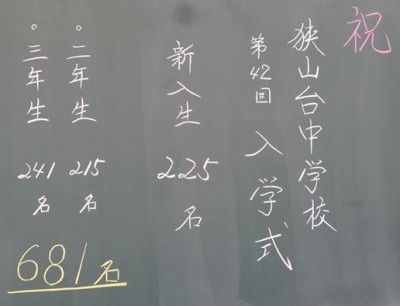 祝
狭山台中学校
第42回 入学式
新入生 225名
。二年生 215名
。三年生 241名
681名